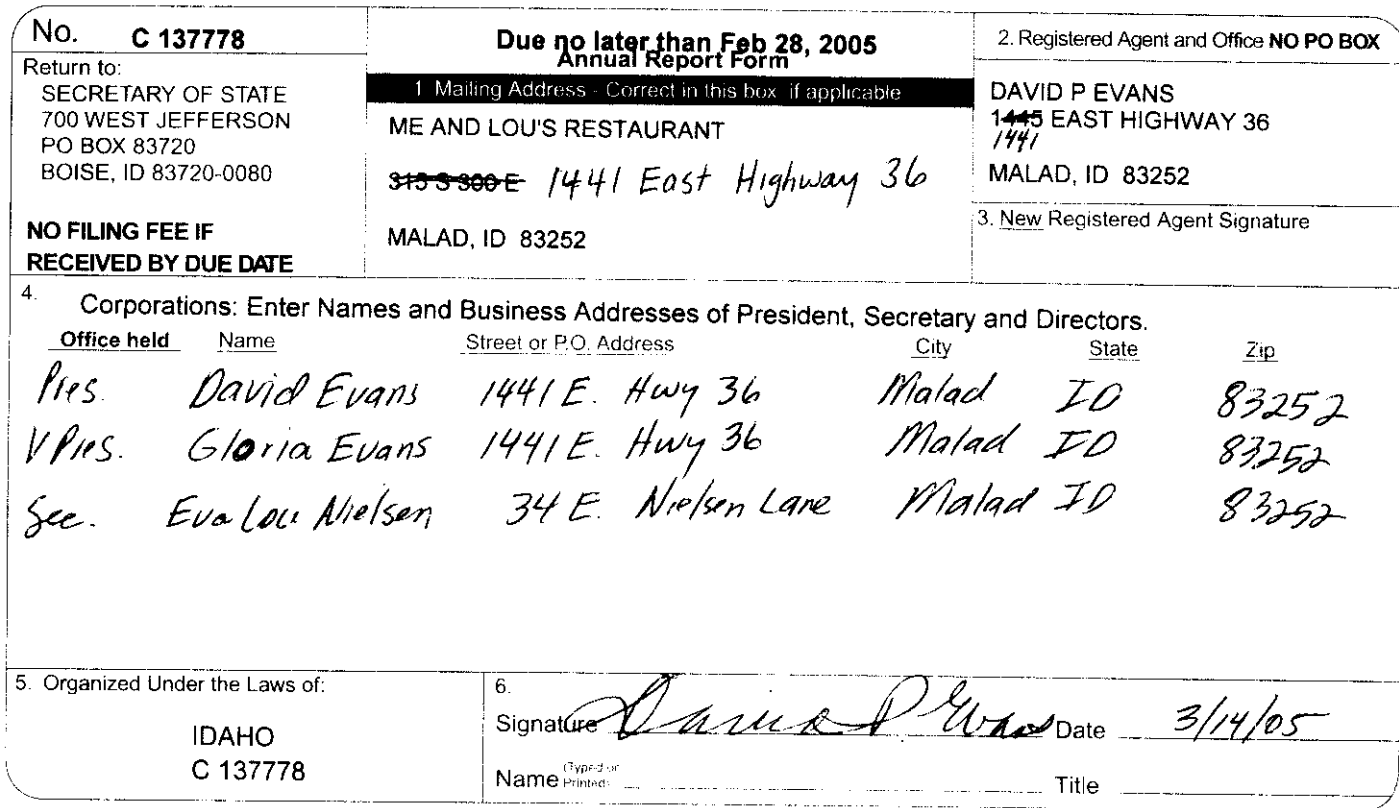 No. C 137778
Return to:
SECRETARY OF STATE
700 WEST JEFFERSON
PO BOX 83720
BOISE, ID 83720-0080
NO FILING FEE IF
RECEIVED BY DUE DATE
Due no later than Feb 28, 2005
Annual Report Form
1 Mailing Address - Correct in this box if applicable
ME AND LOU'S RESTAURANT
315 S 300 E 1441 East Highway 36
MALAD, ID 83252
2. Registered Agent and Office NO PO BOX
DAVID P EVANS
1445 EAST HIGHWAY 36
1441
MALAD, ID 83252
3. New Registered Agent Signature
4. Corporations: Enter Names and Business Addresses of President, Secretary and Directors.
Office held Name Street or P.O. Address City State Zip
Pres. David Evans 1441 E. Hwy 36 Malad ID 83252
V Pres. Gloria Evans 1441 E. Hwy 36 Malad ID 83252
Sec. Eva Lou Nielsen 34 E. Nielsen Lane Malad ID 83252
5. Organized Under the Laws of:
IDAHO
C 137778
6.
Signature David P Evans Date 3/14/05
Name (Typed or Printed) Title